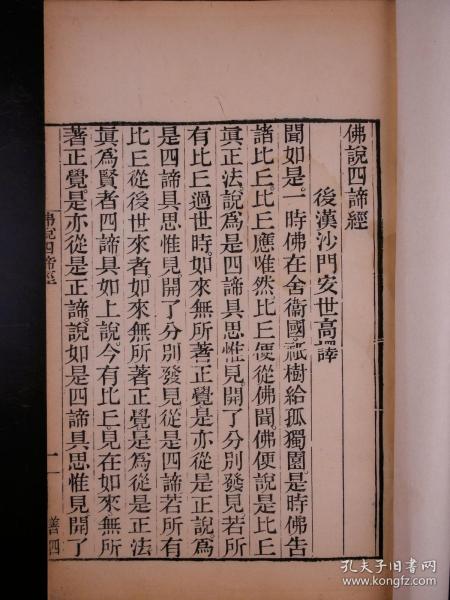 佛說四諦經
後漢沙門安世高譯
聞如是。一時佛在舍衛國祇樹給孤獨園。是時佛告
諸比丘。比丘應唯然。比丘便從佛聞。佛便說是比丘
真正法。說為是四諦具思惟見。開了分別發見。若所
有比丘過世時。如來無所著正覺。是亦從是正說。為
是四諦具思惟見開了分別發見。從是四諦。若所有
比丘從後世來者。如來無所著正覺。是為從是正法
真為賢者四諦具如上說。今有比丘。見在如來無所
著正覺。是亦從是正諦。說如是四諦具思惟見開了
佛說四諦經
一
善四
孔夫子旧书网
www.kongfz.com